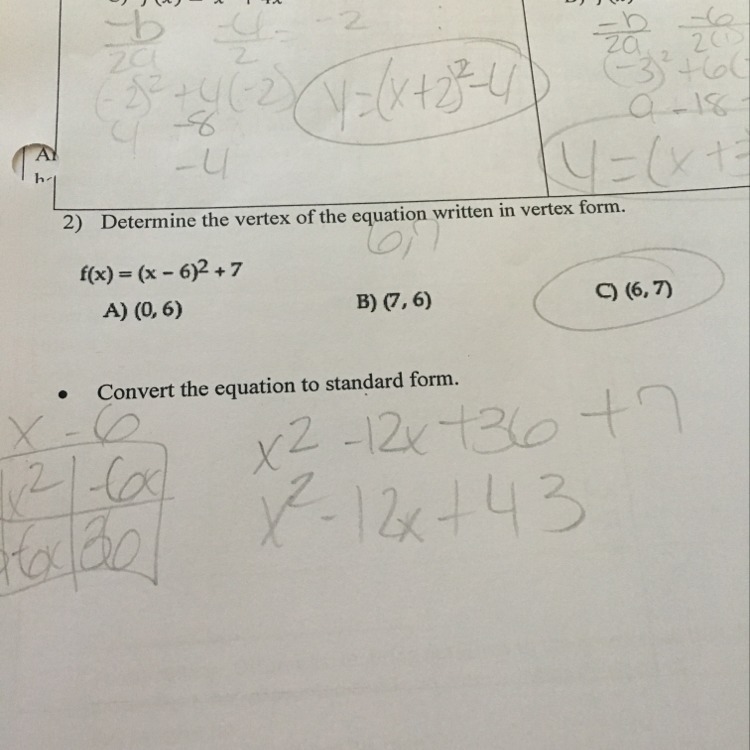 -b/2a -4/2 = -2
(-2)² + 4(-2)
4 -8
-4
y=(x+2)²-4
-b/2a -6/2(1)
(-3)² + 6(-
9 -18
y=(x+3
2) Determine the vertex of the equation written in vertex form.
6,7
f(x) = (x – 6)² + 7
A) (0, 6) B) (7, 6) C) (6, 7)
• Convert the equation to standard form.
x - 6
x² -6x
-6x 36
x² -12x +36 +7
x² -12x +43